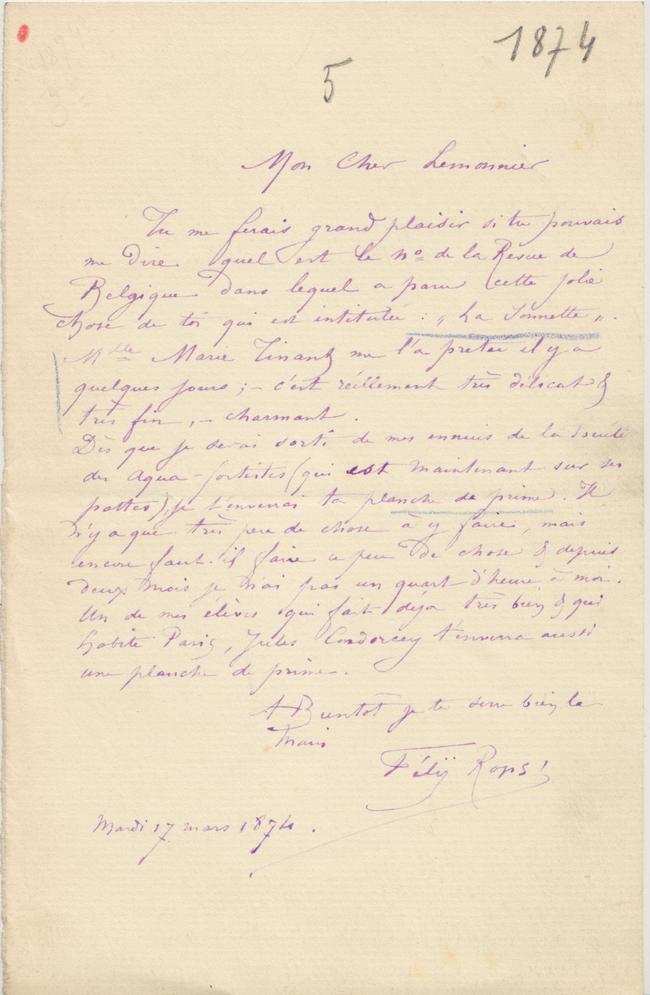 1874
5
Mon Cher Lemonnier
Tu me ferais grand plaisir si tu pouvais
me dire quel est le nº de la Revue de
Belgique dans lequel a paru cette jolie
chose de toi qui est intitulée : „ La Sonnette „.
Mlle Marie me l'a pretée il y a
quelques jours ; – c'est réellement très délicat &
très fin, – charmant.
Dès que je serai sorti de mes ennuis de la Société
des Aqua-fortistes (qui est maintenant sur ses
pattes), je t'enverrai ta planche de prime. Il
n'y a que très peu de chose à y faire, mais
encore faut-il faire ce peu de chose & depuis
deux mois je n'ai pas un quart d'heure à moi.
Un de mes élèves qui fait déja très bien & qui
habite Paris, Jules t'enverra aussi
une planche de prime.
A Bientôt je te serre bien la
main
Félÿ Rops
Mardi 17 mars 1874.